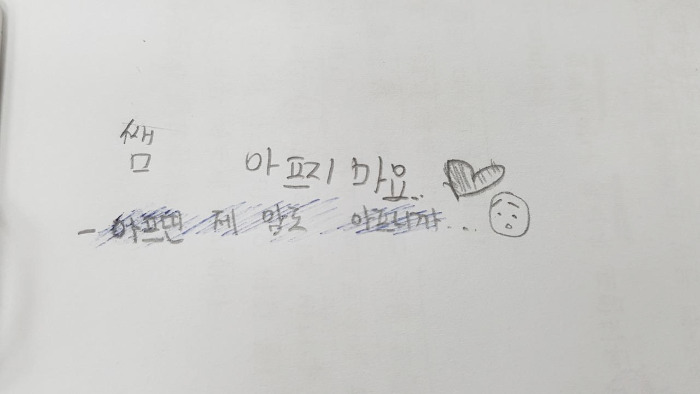 쌤 아프리 마요..
- 아프면 제 맘도 아프니까...